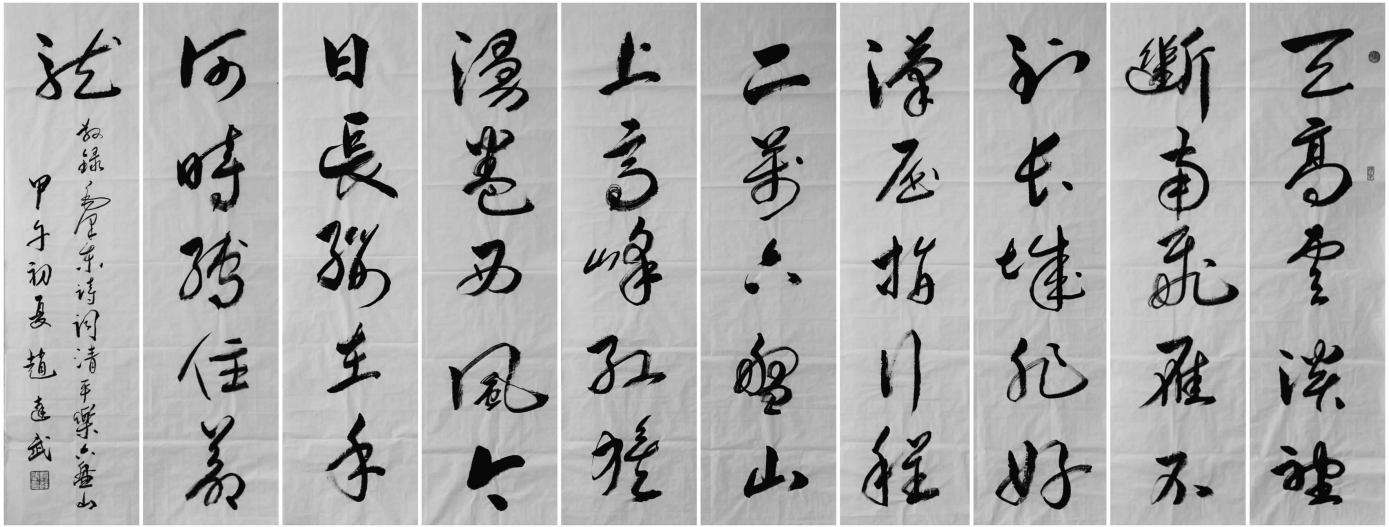 天高雲淡望
斷南飛雁不
到長城非好
漢屈指行程
二萬六盤山
上高峰紅旗
漫卷西風今
日長纓在手
何時縛住蒼
龍
敬録毛澤東詩詞清平樂六盤山
甲午初夏趙達武